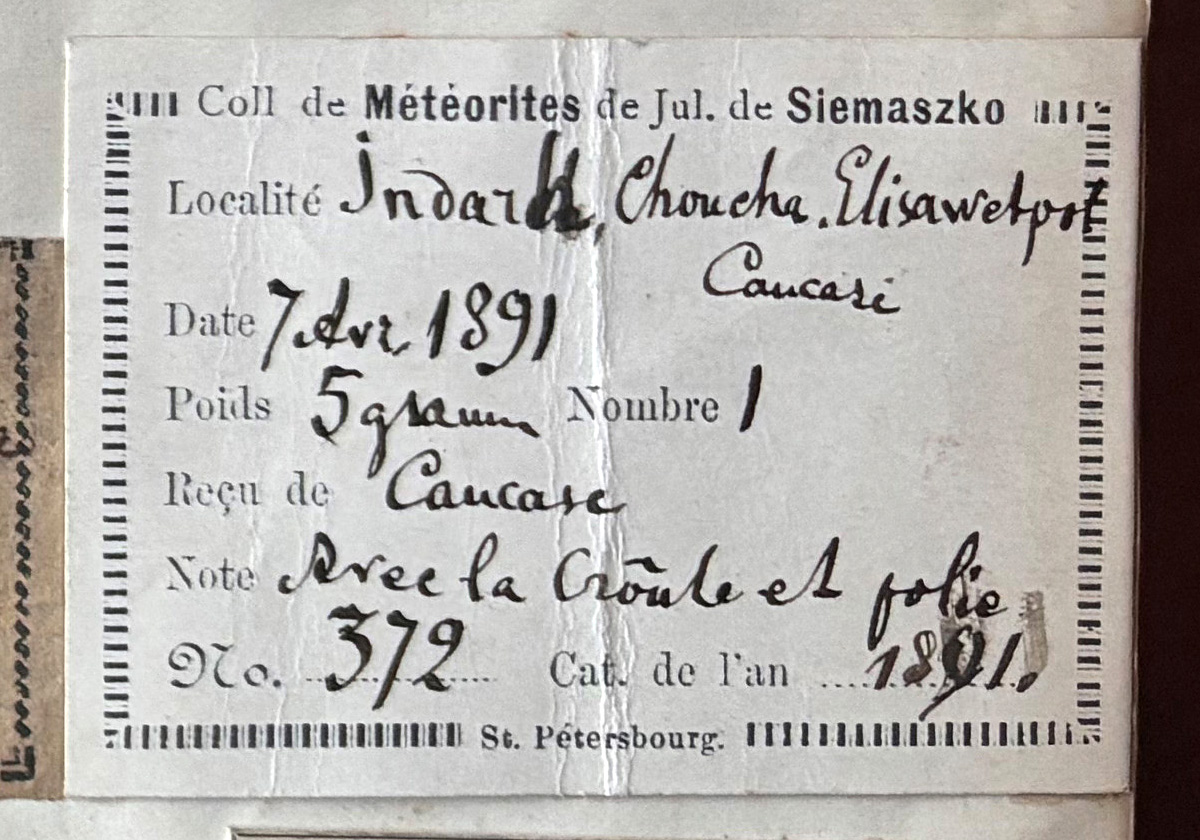 Coll de Météorites de Jul. de Siemaszko
Localité Indarkh, Choucha, Elisawetpol
Caucase
Date 7 Avr. 1891
Poids 5 gramm Nombre 1
Reçu de Caucase
Note Avec la Croûte et polie
No. 372 Cat. de l'an 1891.
St. Pétersbourg.